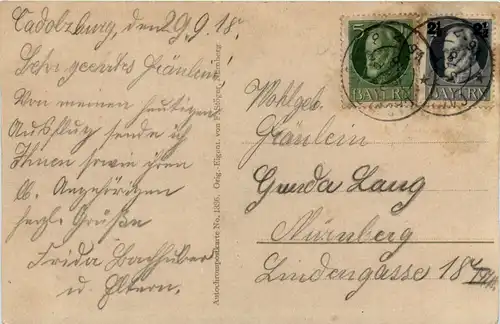 Cadolzburg, den 29.9.18.
Sehr geehrtes Fräulein!
Von meinem heutigen
Ausflug sende ich
Ihnen sowie ihren
lb. Angehörigen
herzl. Grüße
Frida Bachhuber
u. Eltern.
Autochrompostkarte No. 1896. Orig.-Eigent. von Nürnberg
5
BAYERN
2½ 2½
BAYERN
Wohlgeb.
Fräulein
Gunda Lang
Nürnberg
Lindengasse 18